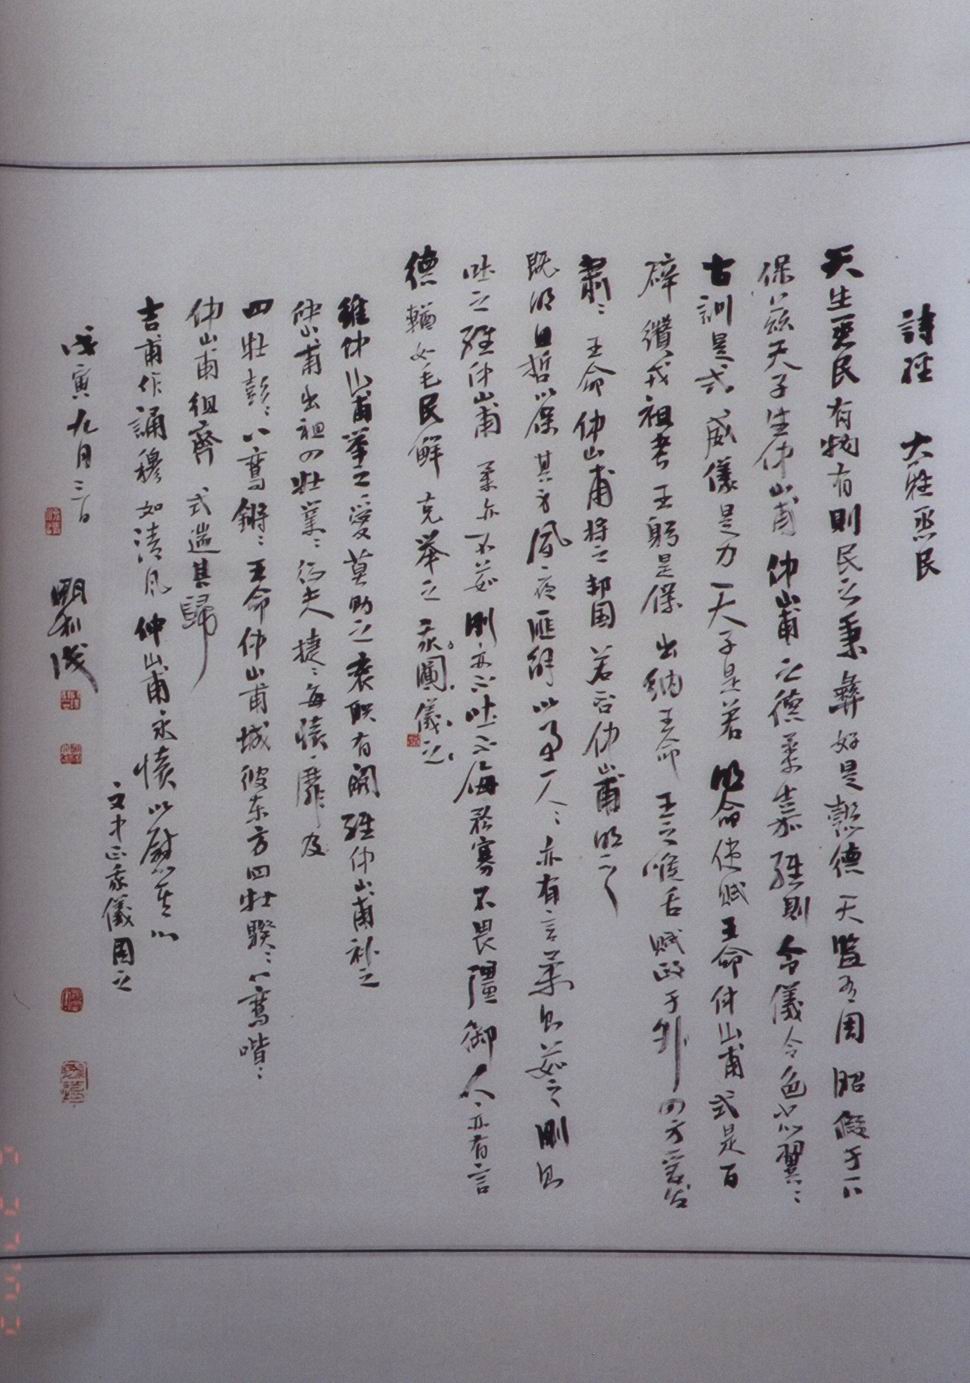 詩經 大雅烝民
天生烝民有物有則民之秉彝好是懿德天監有周昭假于下
保茲天子生仲山甫仲山甫之德柔嘉維則令儀令色小心翼〻
古訓是式威儀是力天子是若明命使賦王命仲山甫式是百
辟纘戎祖考王躬是保出納王命王之喉舌賦政于外四方爰發
肅〻王命仲山甫將之邦国若否仲山甫明之
既明且哲以保其身夙夜匪解以事一人〻亦有言柔則茹之剛則
吐之維仲山甫柔亦不茹剛亦不吐不侮矜寡不畏彊御人亦有言
德輶如毛民鮮克举之我圖儀之
維仲山甫举之爱莫助之衮职有闕維仲山甫补之
仲山甫出祖四牡業〻征夫捷〻每懷靡及
四牡彭〻八鸾鏘〻王命仲山甫城彼东方四牡騤〻八鸾喈〻
仲山甫徂齊式遄其歸
吉甫作誦穆如清风仲山甫永懷以慰其心
文中正我儀圖之
戊寅九月三日